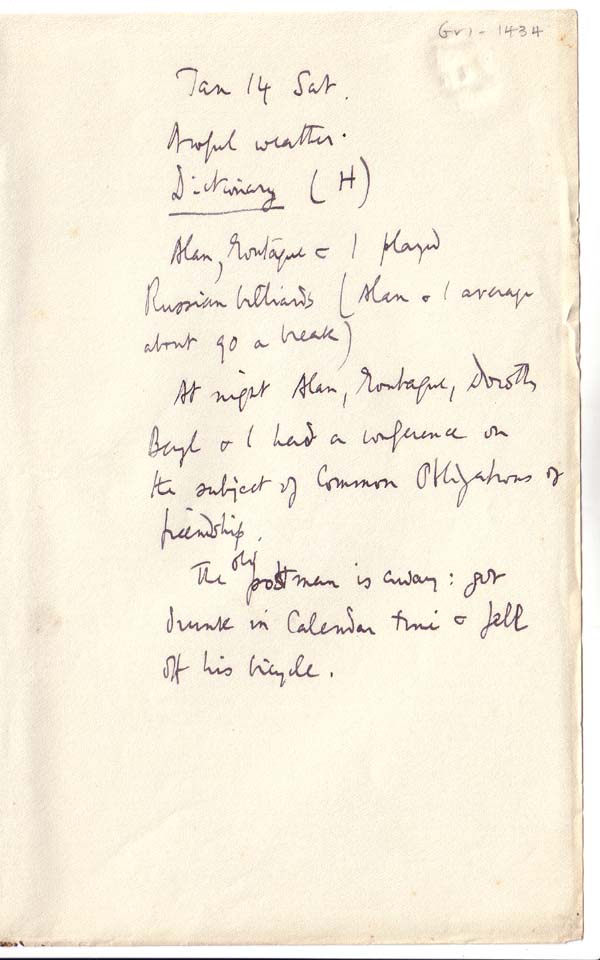 Gv1 - 1434
Jan 14 Sat.
Awful weather.
Dictionary (H)
Alan, Montague & I played
Russian billiards (Alan & I average
about 90 a break)
At night Alan, Montague, Dorothy
Beryl & I had a conference on
the subject of Common Obligations of
friendship.
The old postman is away: got
drunk in Calendar time & fell
off his bicycle.